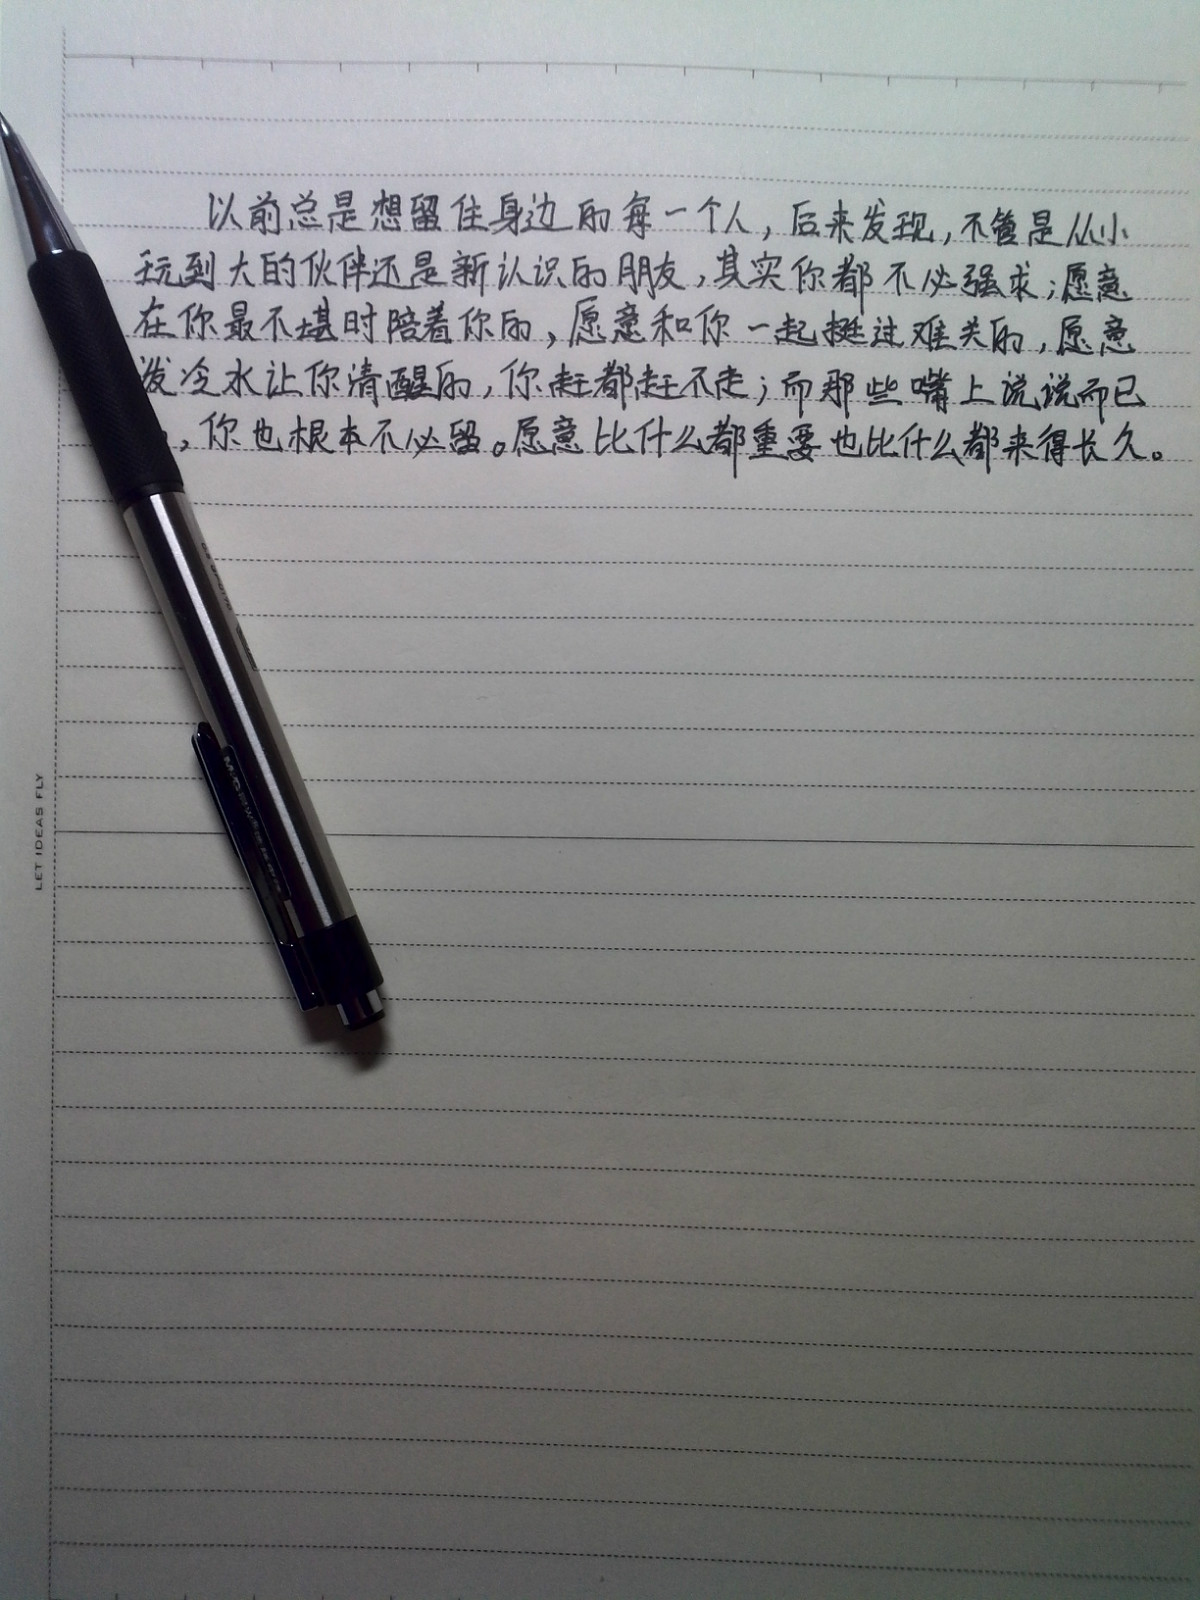 LET IDEAS FLY
以前总是想留住身边的每一个人，后来发现，不管是从小
玩到大的伙伴还是新认识的朋友，其实你都不必强求；愿意
在你最不堪时陪着你的，愿意和你一起挺过难关的，愿意
泼冷水让你清醒的，你赶都赶不走；而那些嘴上说说而已
，你也根本不必留。愿意比什么都重要也比什么都来得长久。
M&G